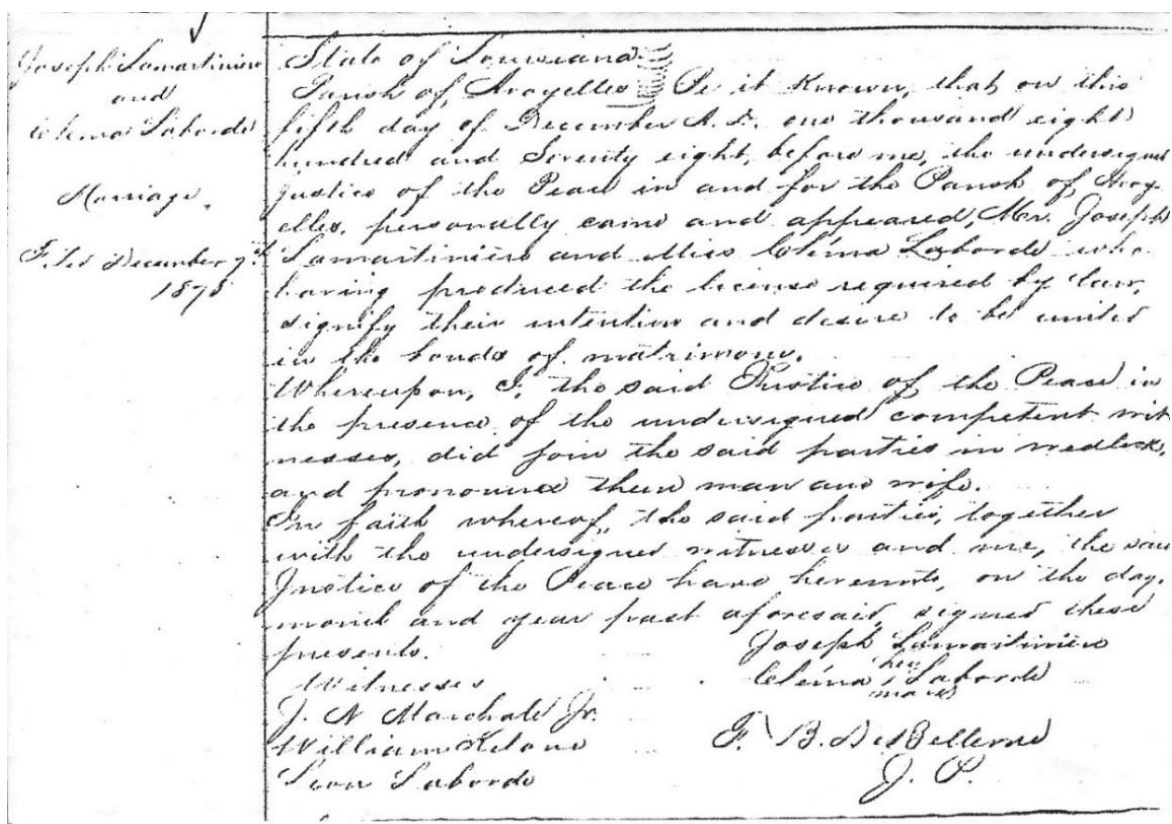 Joseph Lamartiniere
and
Clema Laborde
Marriage.
Filed December 7th
1878
State of Louisiana
Parish of Avoyelles Be it Known, that on this
fifth day of December A.D. one thousand eight
hundred and Seventy eight, before me, the undersigned
Justice of the Peace in and for the Parish of Avoy-
elles, personally came and appeared, Mr. Joseph
Lamartiniere and Miss Cléma Laborde who
having produced the license required by law,
signify their intention and desire to be united
in the bonds of matrimony.
Whereupon, I, the said Justice of the Peace in
the presence of the undersigned competent wit-
nesses, did join the said parties in wedlock,
and pronounce them man and wife.
In faith whereof, the said parties, together
with the undersigned witnesses and me, the said
Justice of the Peace have hereunto, on the day,
month and year past aforesaid, signed these
presents.
Joseph Lamartiniere
her
Cléma Laborde
mark
Witnesses
J. N. Marchale Jr.
William
Leon Laborde
F. B. De Bellevue
J. P.